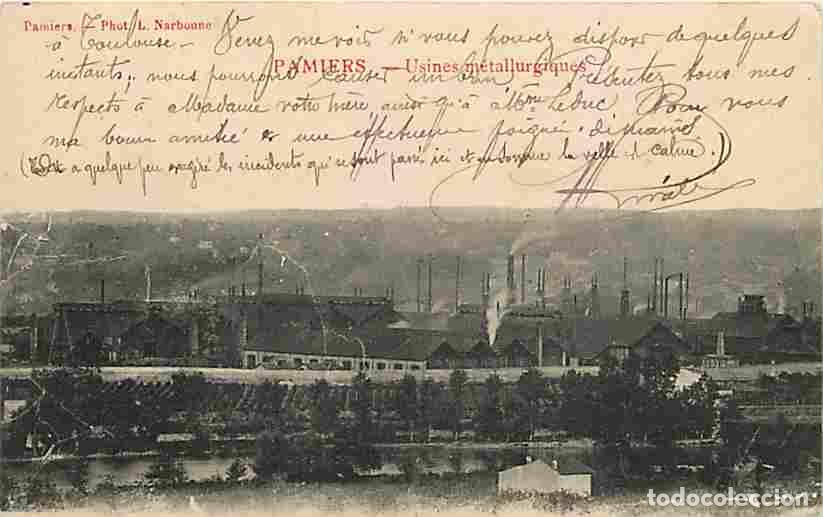 Pamiers. - Phot. L. Narbonne
à Toulouse - Venez me voir si vous pouvez disposer de quelques
PAMIERS. — Usines métallurgiques
instants; nous pourrons causer un peu. Présentez tous mes
respects à Madame votre mère ainsi qu'à Mme Leduc Pour vous
ma bonne amitié et une affectueuse poignée de mains
a quelque peu exagéré les incidents qui se sont passés ici et en somme la ville est calme.)
todocoleccion